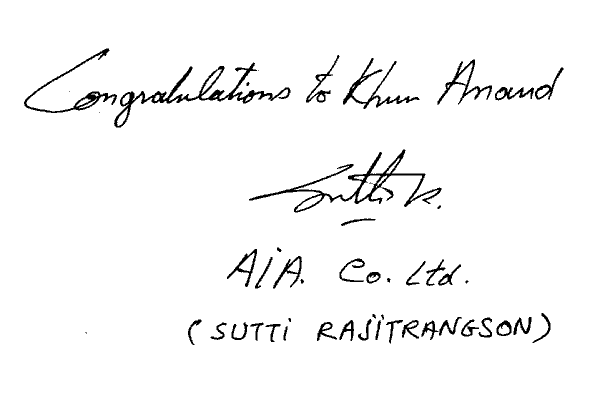 Congratulations to Khun Anand
Sutti R.
AIA. Co. Ltd.
(SUTTI RAJITRANGSON)